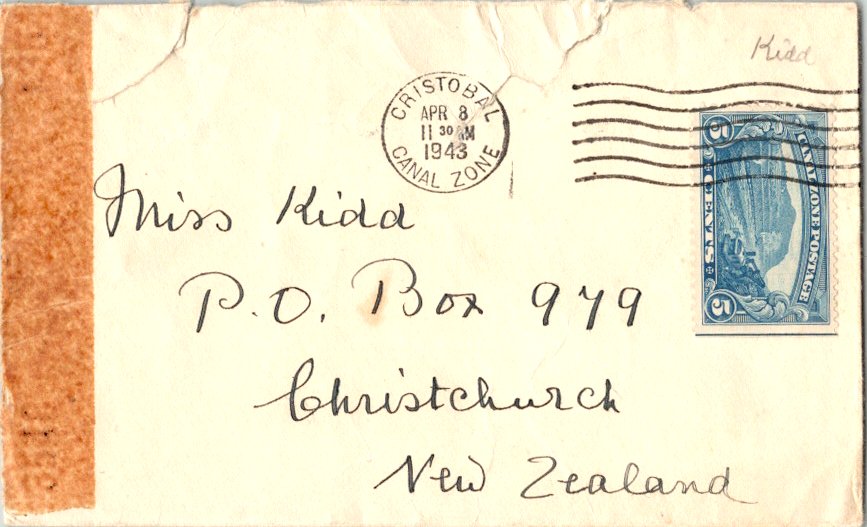 Kidd
CRISTOBAL
APR 8
11 30 AM
1943
CANAL ZONE
Miss Kidd
P.O. Box 979
Christchurch
New Zealand
CANAL ZONE POSTAGE
5 CENTS 5